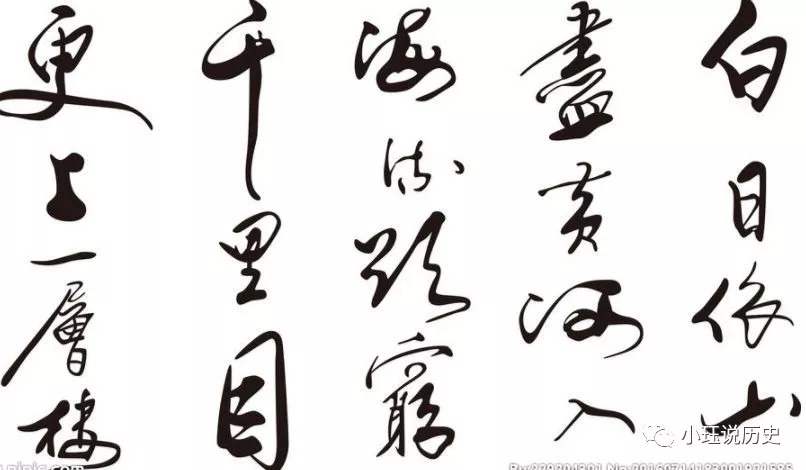 白日依山
盡黄河入
海流欲窮
千里目
更上一層樓
小珏说历史